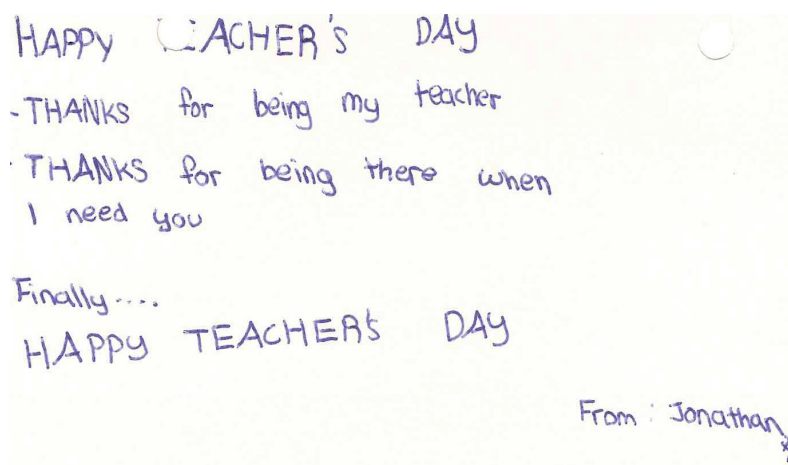 HAPPY TEACHER'S DAY
- THANKS for being my teacher
- THANKS for being there when
I need you
Finally....
HAPPY TEACHER'S DAY
From : Jonathan